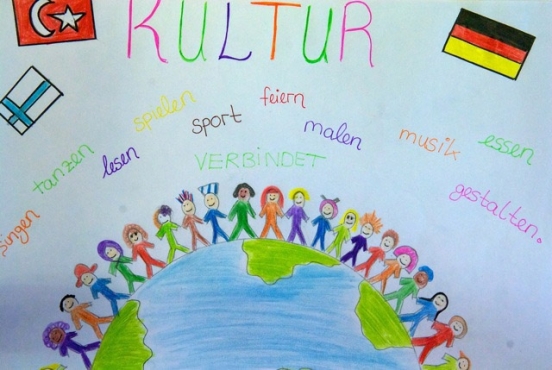 KULTUR
singen
tanzen
lesen
spielen
sport
feiern
malen
musik
essen
gestalten.
VERBINDET